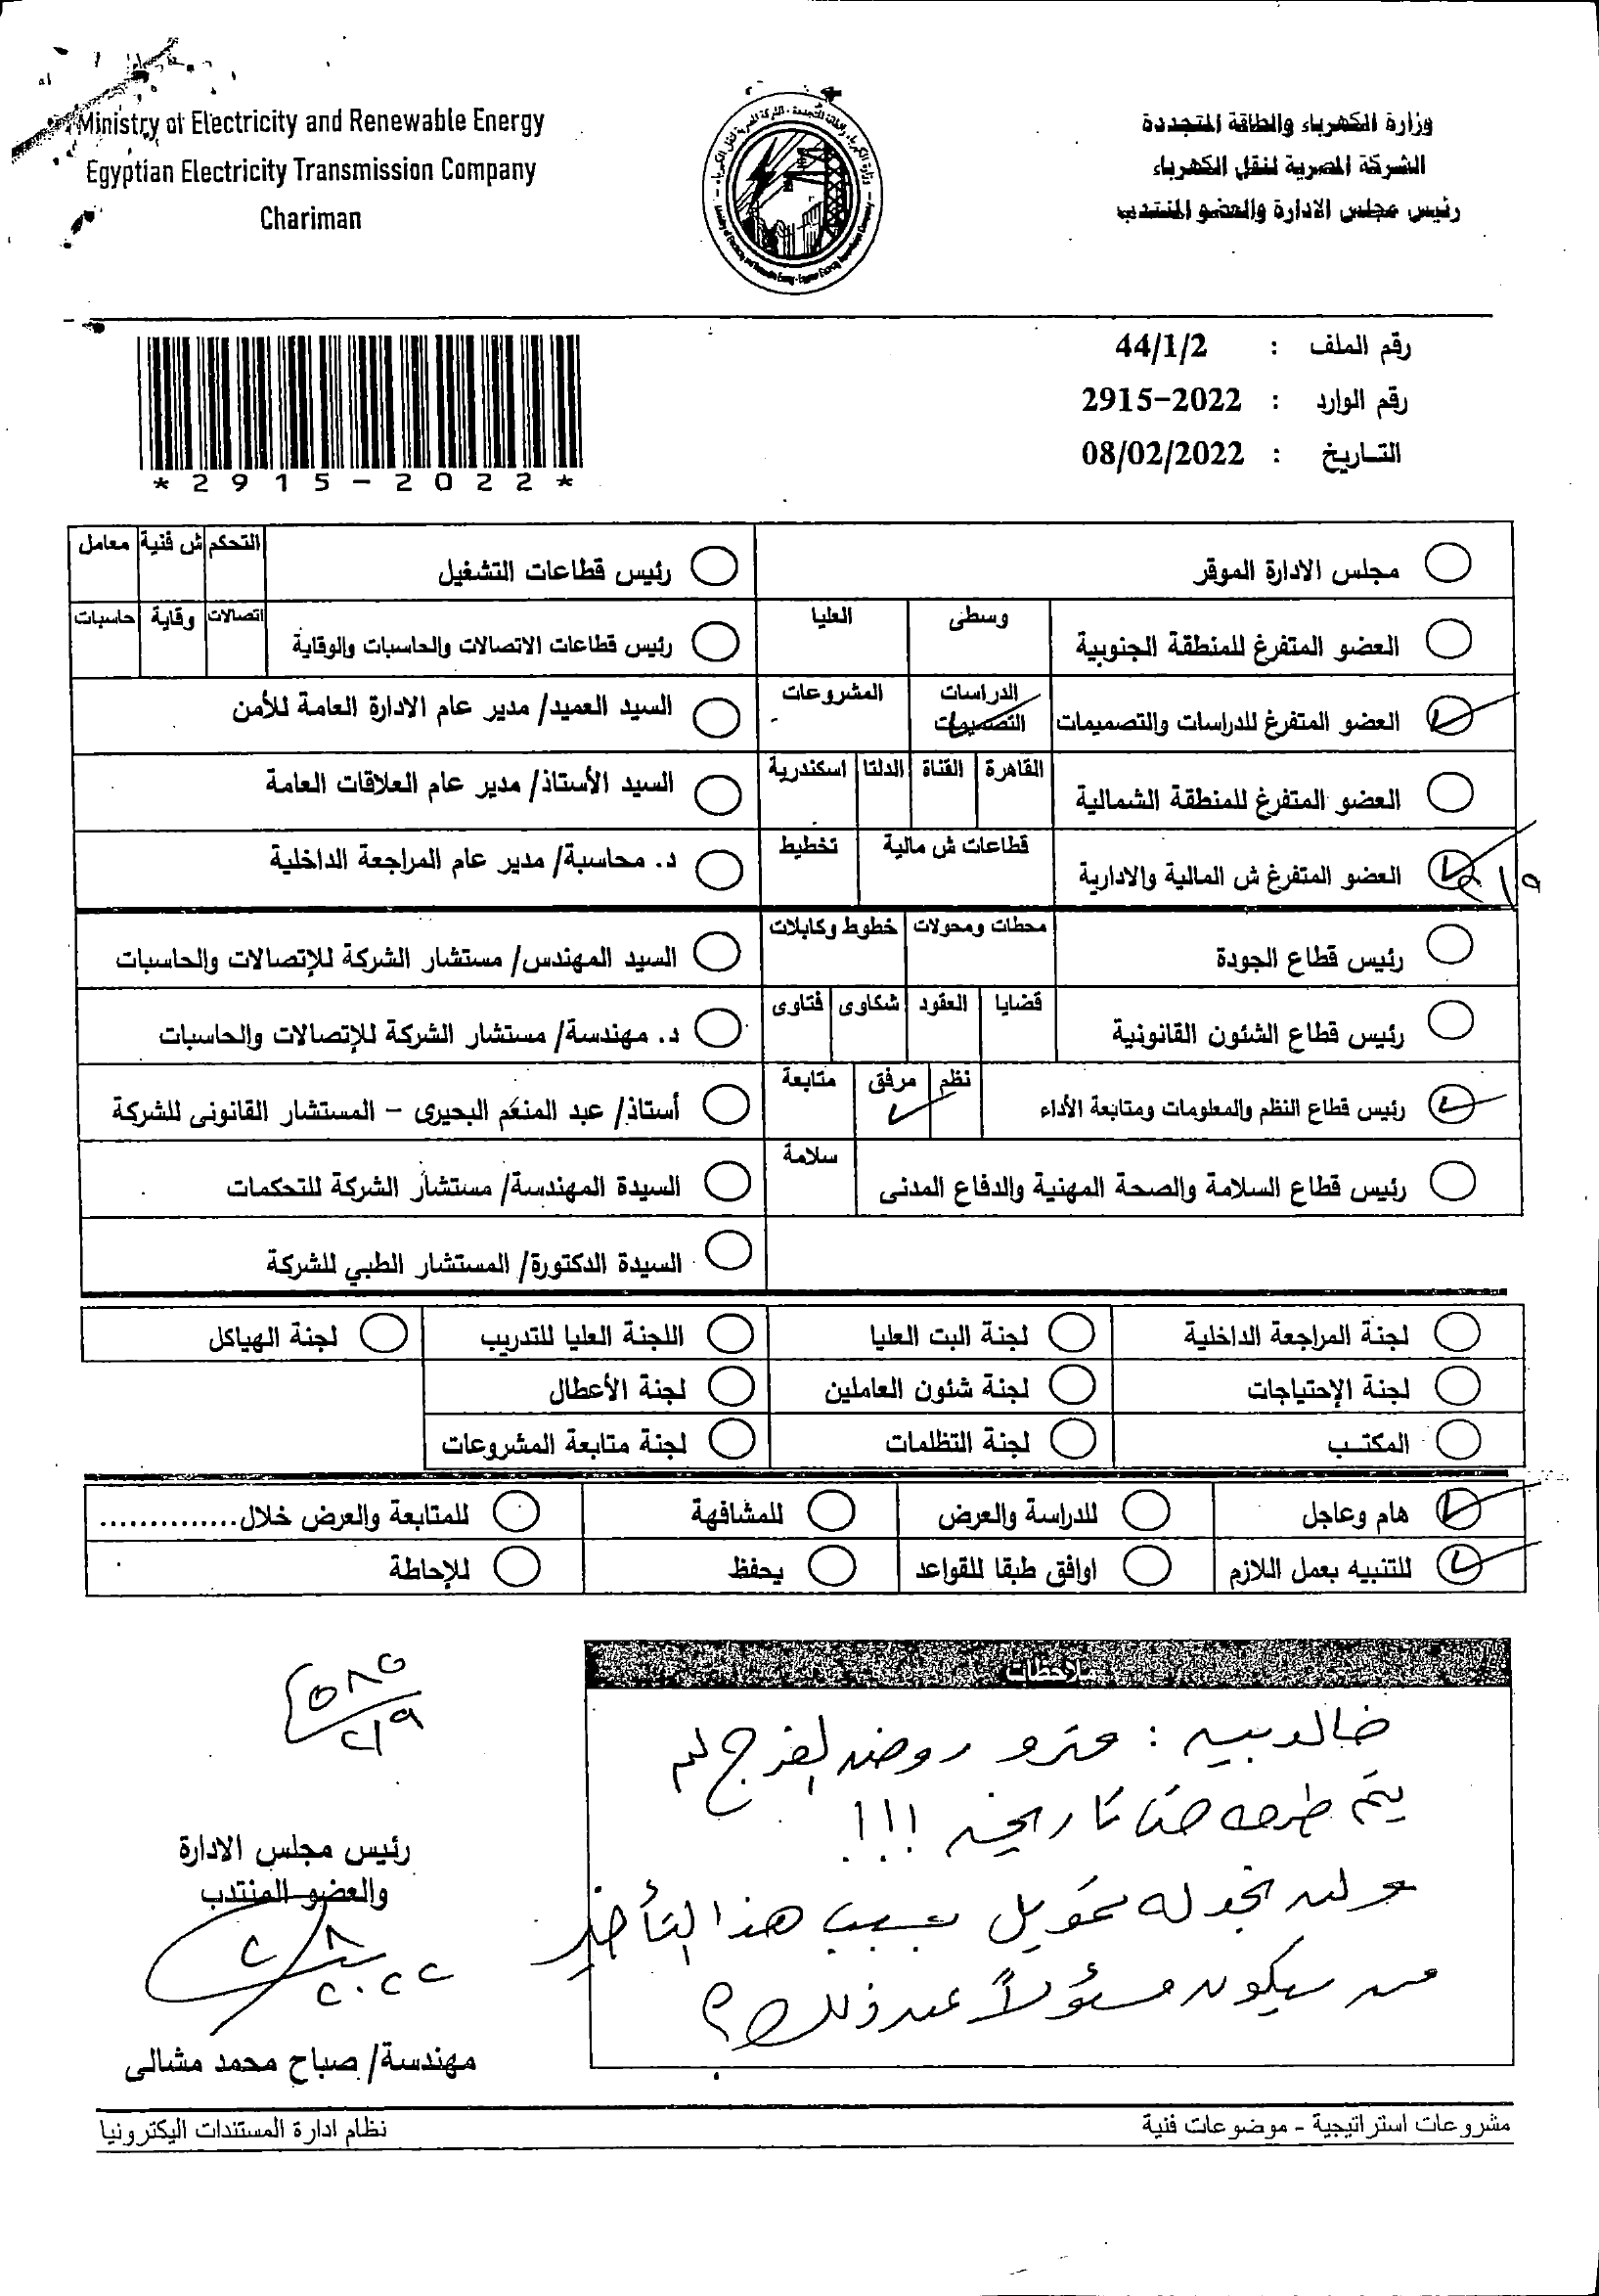 Ministry of Electricity and Renewable Energy
Egyptian Electricity Transmission Company
Chariman
وزارة الكهرباء والطاقة المتجددة
الشركة المصرية لنقل الكهرباء
رئيس مجلس الادارة والعضو المنتدب
رقم الملف : 44/1/2
رقم الوارد : 2915-2022
التاريخ : 08/02/2022
*2915-2022*
مجلس الادارة الموقر
رئيس قطاعات التشغيل
التحكم ش فنية معامل
العضو المتفرغ للمنطقة الجنوبية
وسطى العليا
رئيس قطاعات الاتصالات والحاسبات والوقاية
اتصالات وقاية حاسبات
العضو المتفرغ للدراسات والتصميمات
الدراسات المشروعات
التصميمات
السيد العميد/ مدير عام الادارة العامة للأمن
العضو المتفرغ للمنطقة الشمالية
القاهرة القناة الدلتا اسكندرية
السيد الأستاذ/ مدير عام العلاقات العامة
العضو المتفرغ ش المالية والادارية
قطاعات ش مالية تخطيط
د. محاسبة/ مدير عام المراجعة الداخلية
رئيس قطاع الجودة
محطات ومحولات خطوط وكابلات
السيد المهندس/ مستشار الشركة للإتصالات والحاسبات
رئيس قطاع الشئون القانونية
قضايا العقود شكاوى فتاوى
د. مهندسة/ مستشار الشركة للإتصالات والحاسبات
رئيس قطاع النظم والمعلومات ومتابعة الأداء
نظم مرفق متابعة
أستاذ/ عبد المنعم البحيرى - المستشار القانونى للشركة
رئيس قطاع السلامة والصحة المهنية والدفاع المدنى
سلامة
السيدة المهندسة/ مستشار الشركة للتحكمات
السيدة الدكتورة/ المستشار الطبي للشركة
لجنة المراجعة الداخلية لجنة البت العليا اللجنة العليا للتدريب لجنة الهياكل
لجنة الإحتياجات لجنة شئون العاملين لجنة الأعطال
المكتب لجنة التظلمات لجنة متابعة المشروعات
هام وعاجل للدراسة والعرض للمشافهة للمتابعة والعرض خلال..............
للتنبيه بعمل اللازم اوافق طبقا للقواعد يحفظ للإحاطة
ملاحظات
خالد بيه : مترو روض الفرج لم
يتم طرحه حتى تاريخه !!!
ولن نجد له تمويل بسبب هذا التأخير
من سيكون مسئولاً عن ذلك؟
٢/٩
رئيس مجلس الادارة
والعضو المنتدب
٢/٨
٢٠٢٢
مهندسة/ صباح محمد مشالى
مشروعات استراتيجية - موضوعات فنية
نظام ادارة المستندات اليكترونيا